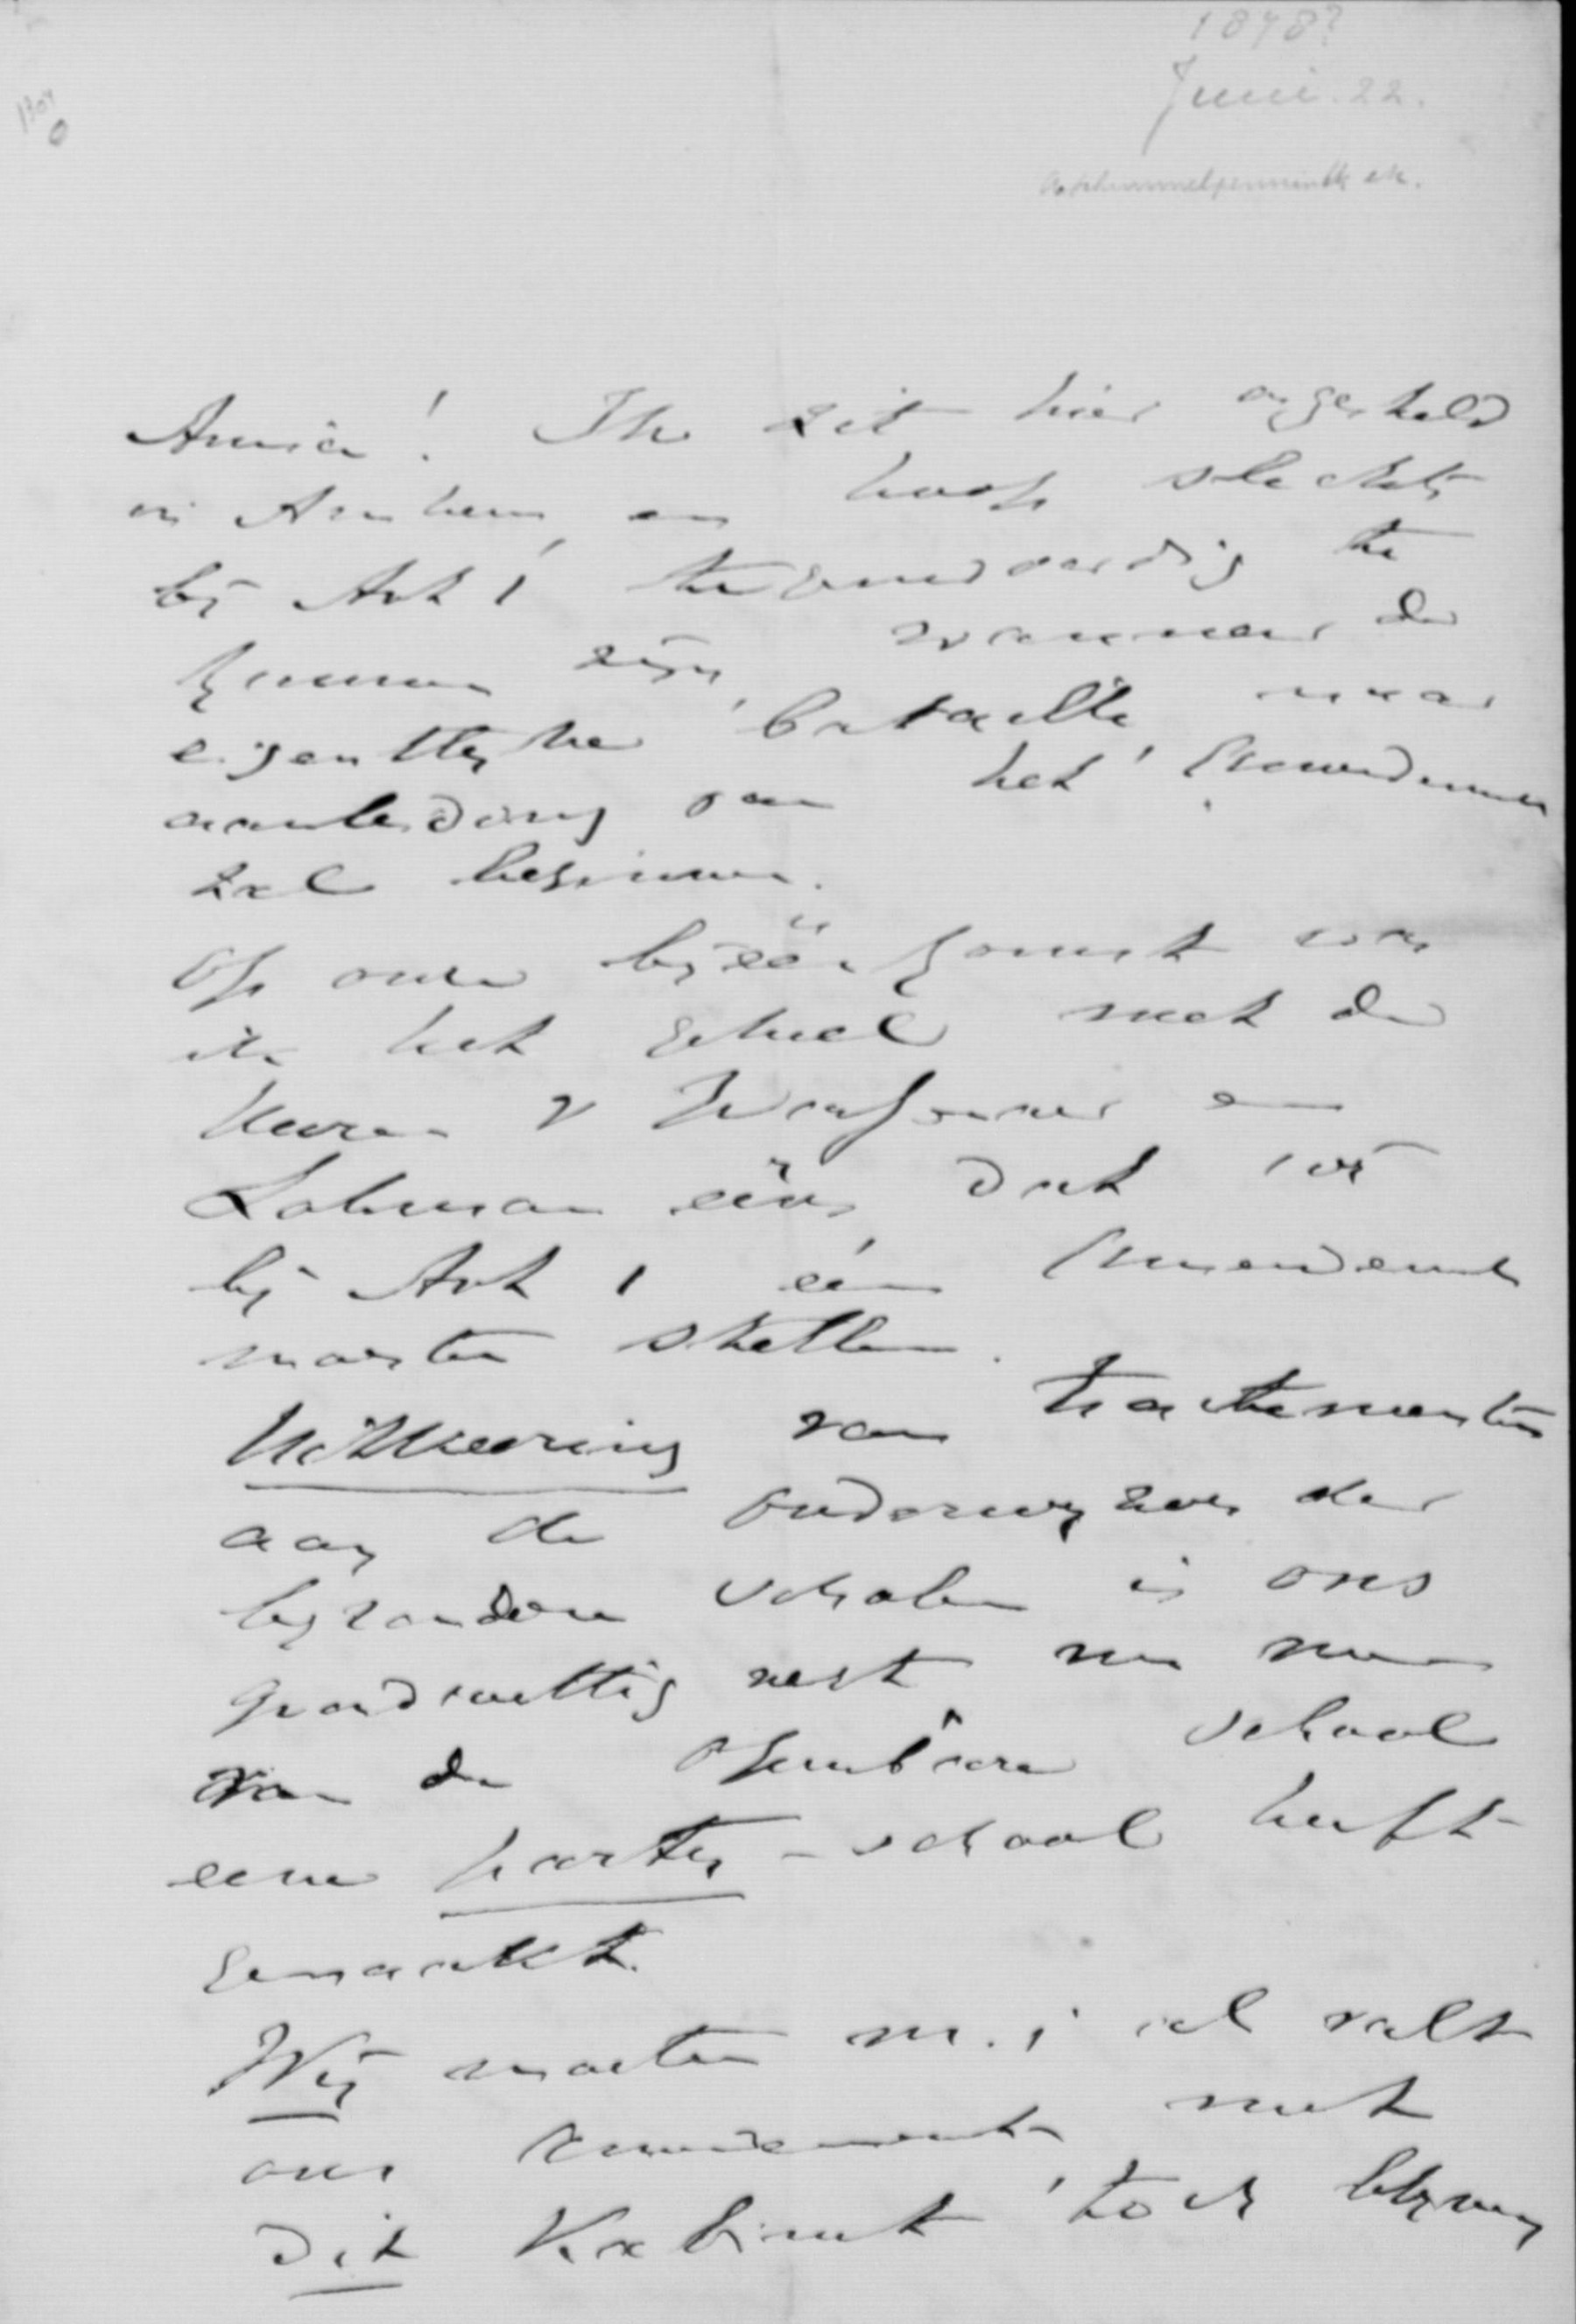 1878?
Juni. 22.
Amice! Ik zit hier opgesteld
in Arnhem en hoop slechts
bij Art 1 tegenwoordig te
kunnen zijn, wanneer de
eigentlyke bataille naar
aanleiding van het Amendement
zal beginnen.
Op onze bijeenkomst was
ik het geheel met de
Heeren v Wassenaer en
Lohman eens, dat wij
bij Art 1 een Amendement
moeten stellen.
Uitkeering van tractementen
aan de onderwyzers der
byzondere scholen is ons
grondwettig recht nu men
van de openbare school
eene party-school heeft
gemaakt.
Wij moeten m.i al valt
ons amendement met
dit Kabinet toch